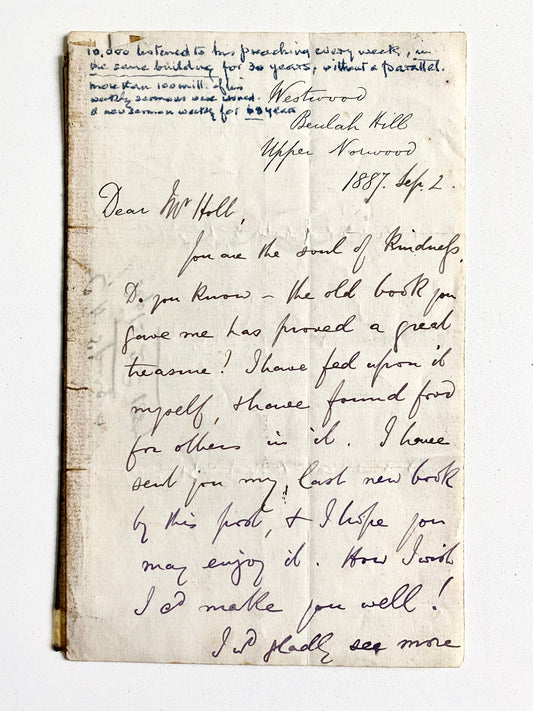 10,000 listened to his preaching every week, in
the same building for 30 years, without a parallel.
more than 100 mill. of his
weekly sermons were issued.
a new sermon weekly for 63 years
Westwood
Beulah Hill
Upper Norwood
1887. Sep. 2.
Dear Mr Holl,
You are the soul of kindness.
Do you know – the old book you
gave me has proved a great
treasure! I have fed upon it
myself, & have found food
for others in it. I have
sent you my last new book
by this post, & I hope you
may enjoy it. How I wish
I cd make you well!
I wd gladly see more